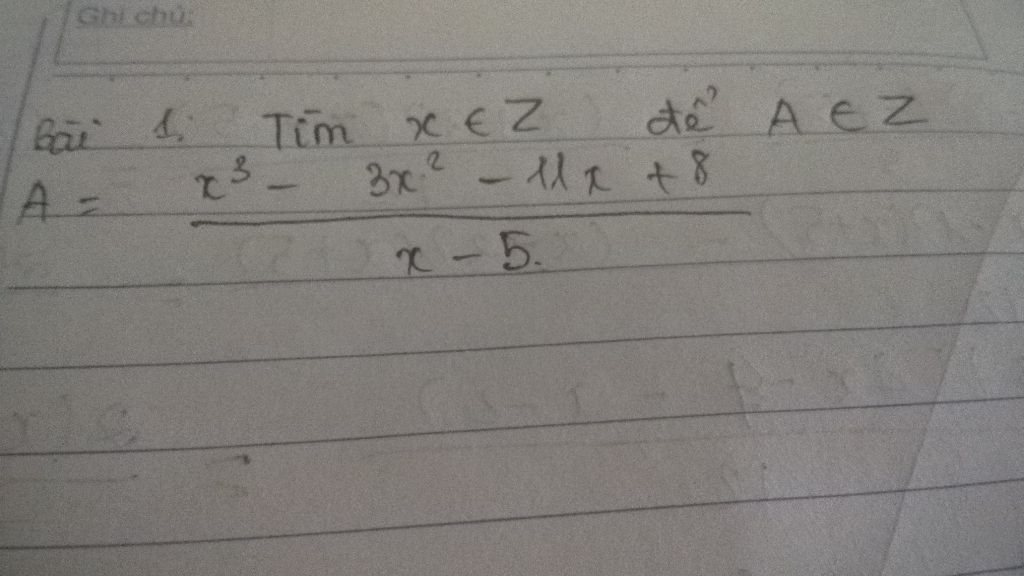 Ghi chú:
Bài 1. Tìm x ∈ Z để A ∈ Z
A = x³ - 3x² - 11x + 8
x - 5.